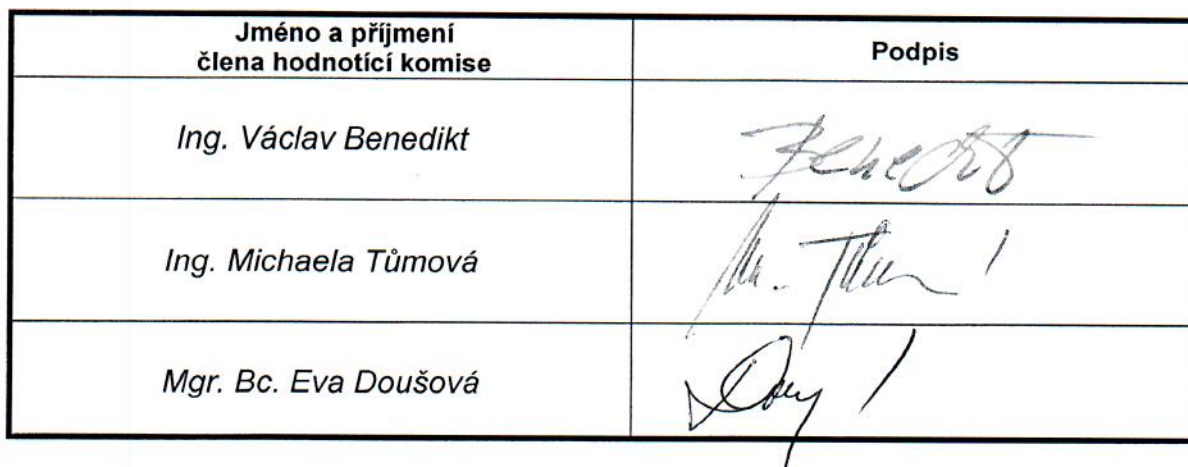 Jméno a příjmení
člena hodnotící komise
Podpis
Ing. Václav Benedikt
Benedikt
Ing. Michaela Tůmová
Mgr. Bc. Eva Doušová